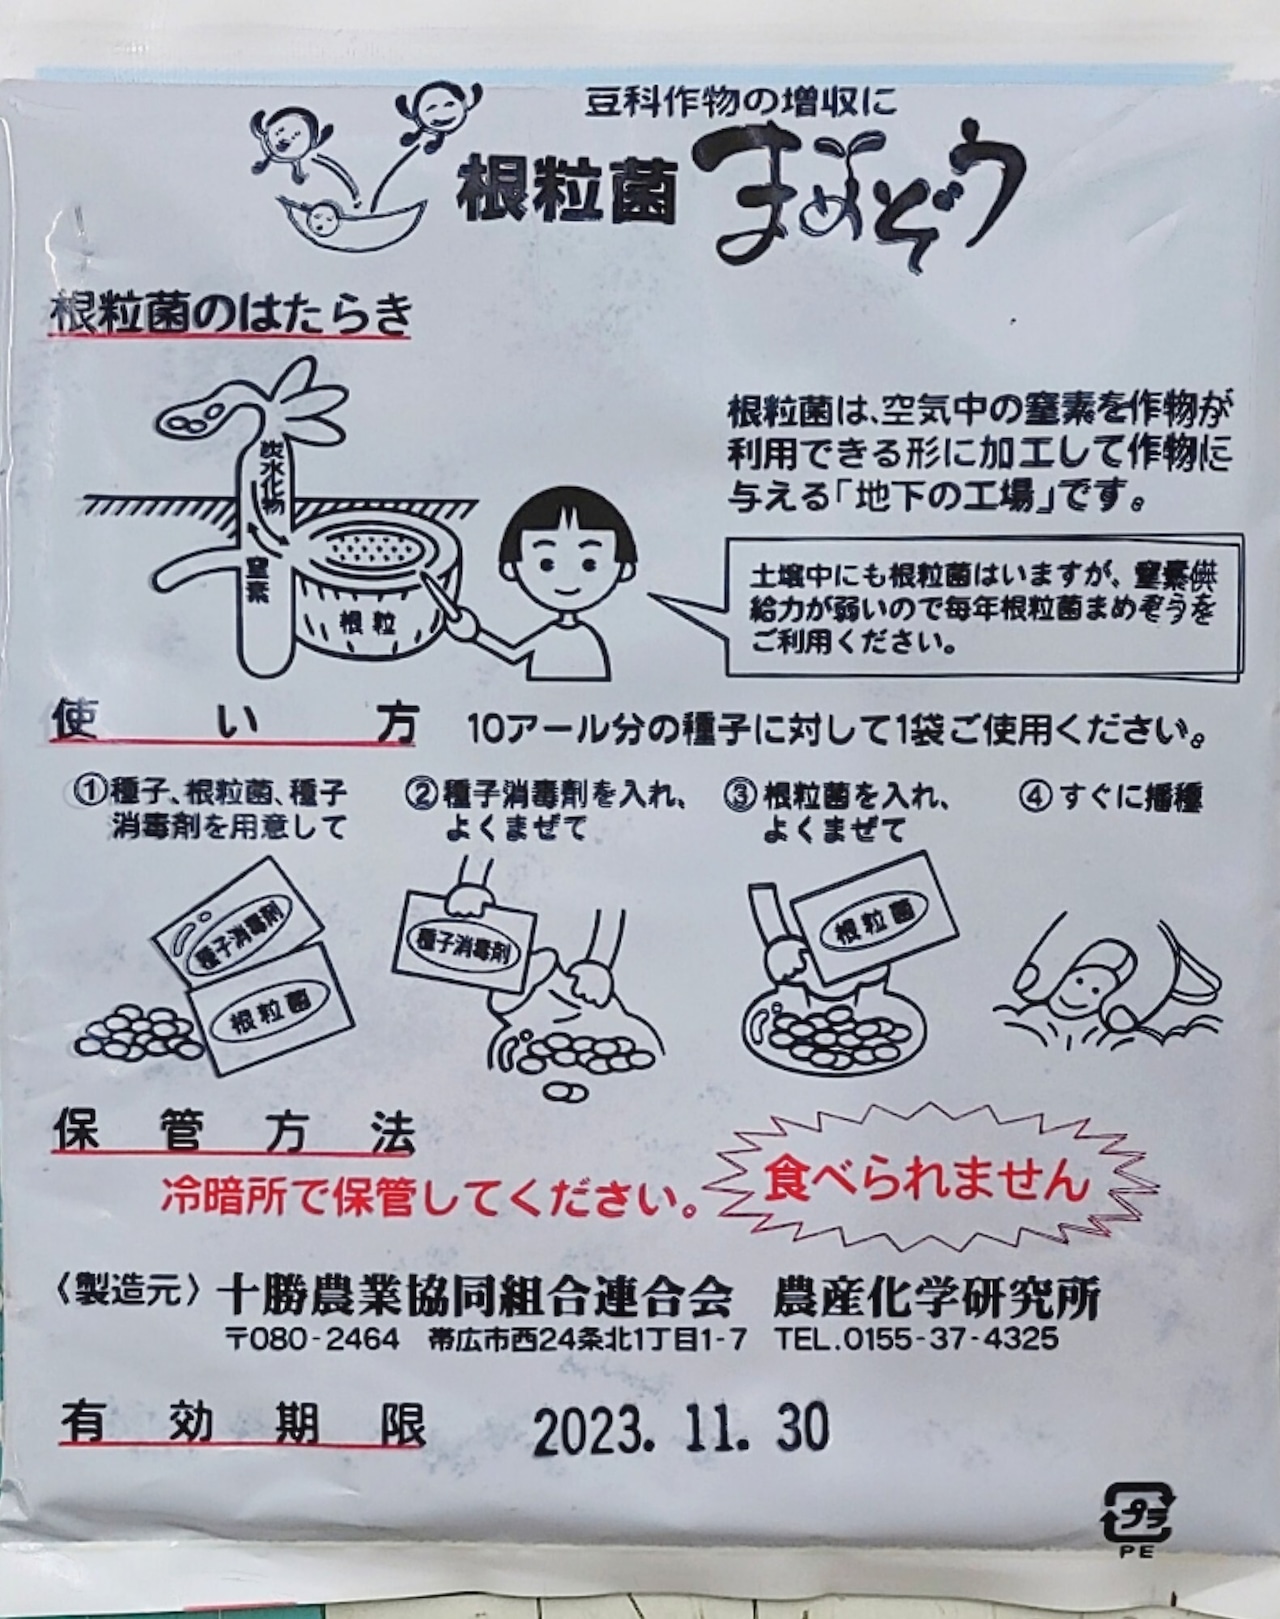 豆科作物の増収に
根粒菌 まめぞう
根粒菌のはたらき
炭水化物
窒素
根粒
根粒菌は、空気中の窒素を作物が
利用できる形に加工して作物に
与える「地下の工場」です。
土壌中にも根粒菌はいますが、窒素供
給力が弱いので毎年根粒菌まめぞうを
ご利用ください。
使い方 10アール分の種子に対して1袋ご使用ください。
①種子、根粒菌、種子
消毒剤を用意して
②種子消毒剤を入れ、
よくまぜて
③根粒菌を入れ、
よくまぜて
④すぐに播種
種子消毒剤
根粒菌
種子消毒剤
根粒菌
保管方法
冷暗所で保管してください。
食べられません
〈製造元〉十勝農業協同組合連合会 農産化学研究所
〒080-2464 帯広市西24条北1丁目1-7 TEL.0155-37-4325
有効期限 2023. 11. 30
プラ
PE